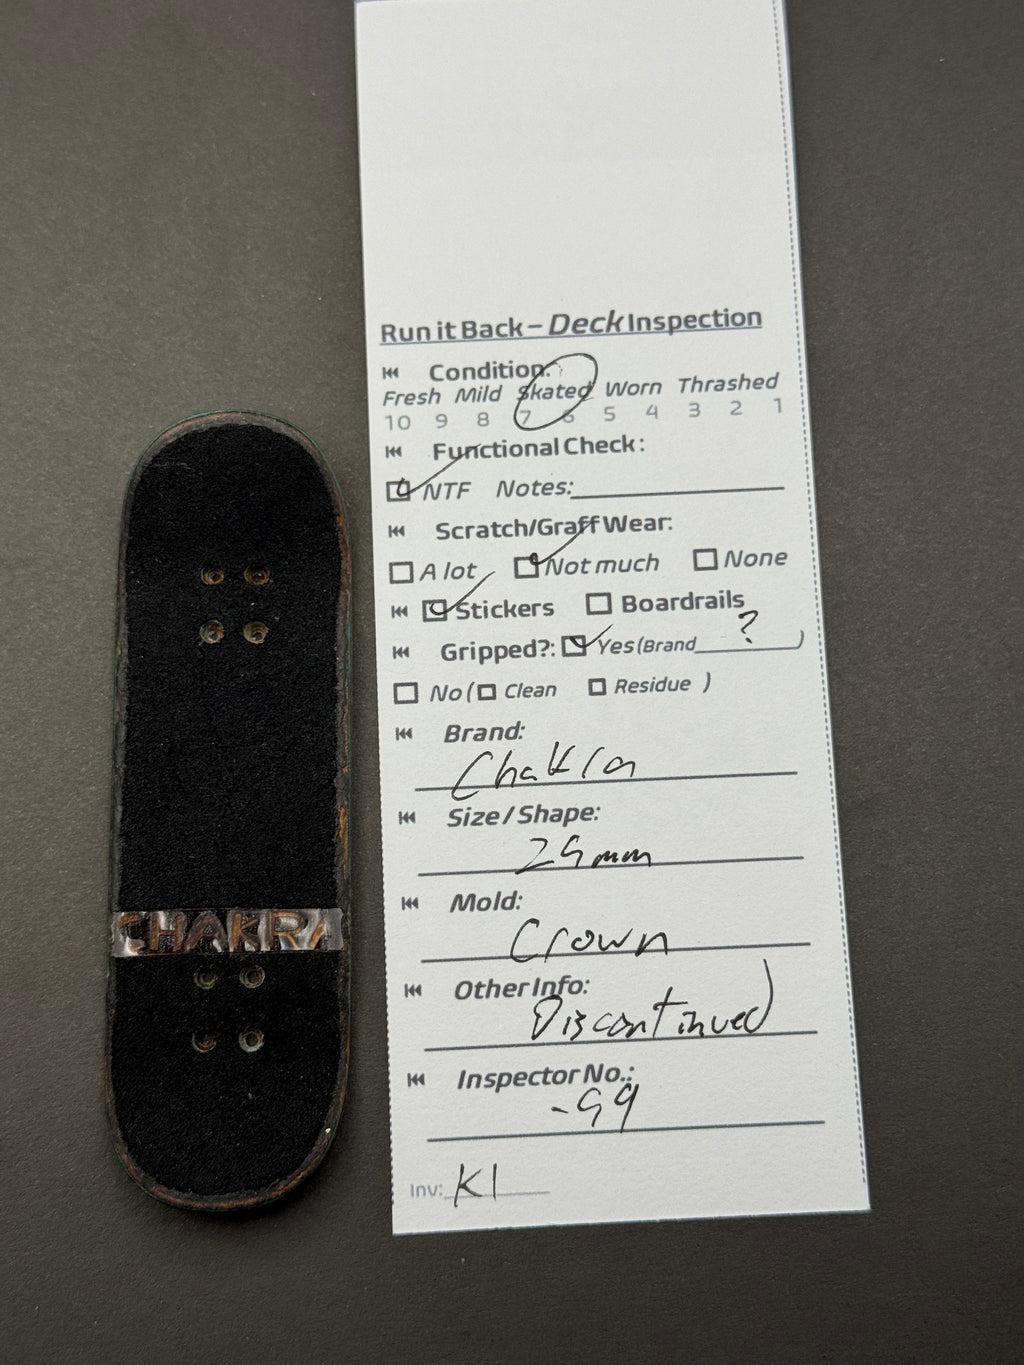 Run it Back – Deck Inspection
Condition:
Fresh Mild Skated Worn Thrashed
10 9 8 7 6 5 4 3 2 1
Functional Check:
NTF Notes:
Scratch/Graff Wear:
A lot Not much None
Stickers Boardrails
Gripped?: Yes (Brand ? )
No ( Clean Residue )
Brand:
Chakra
Size / Shape:
29mm
Mold:
Crown
Other Info:
Discontinued
Inspector No.:
-99
Inv: K1
CHAKRA